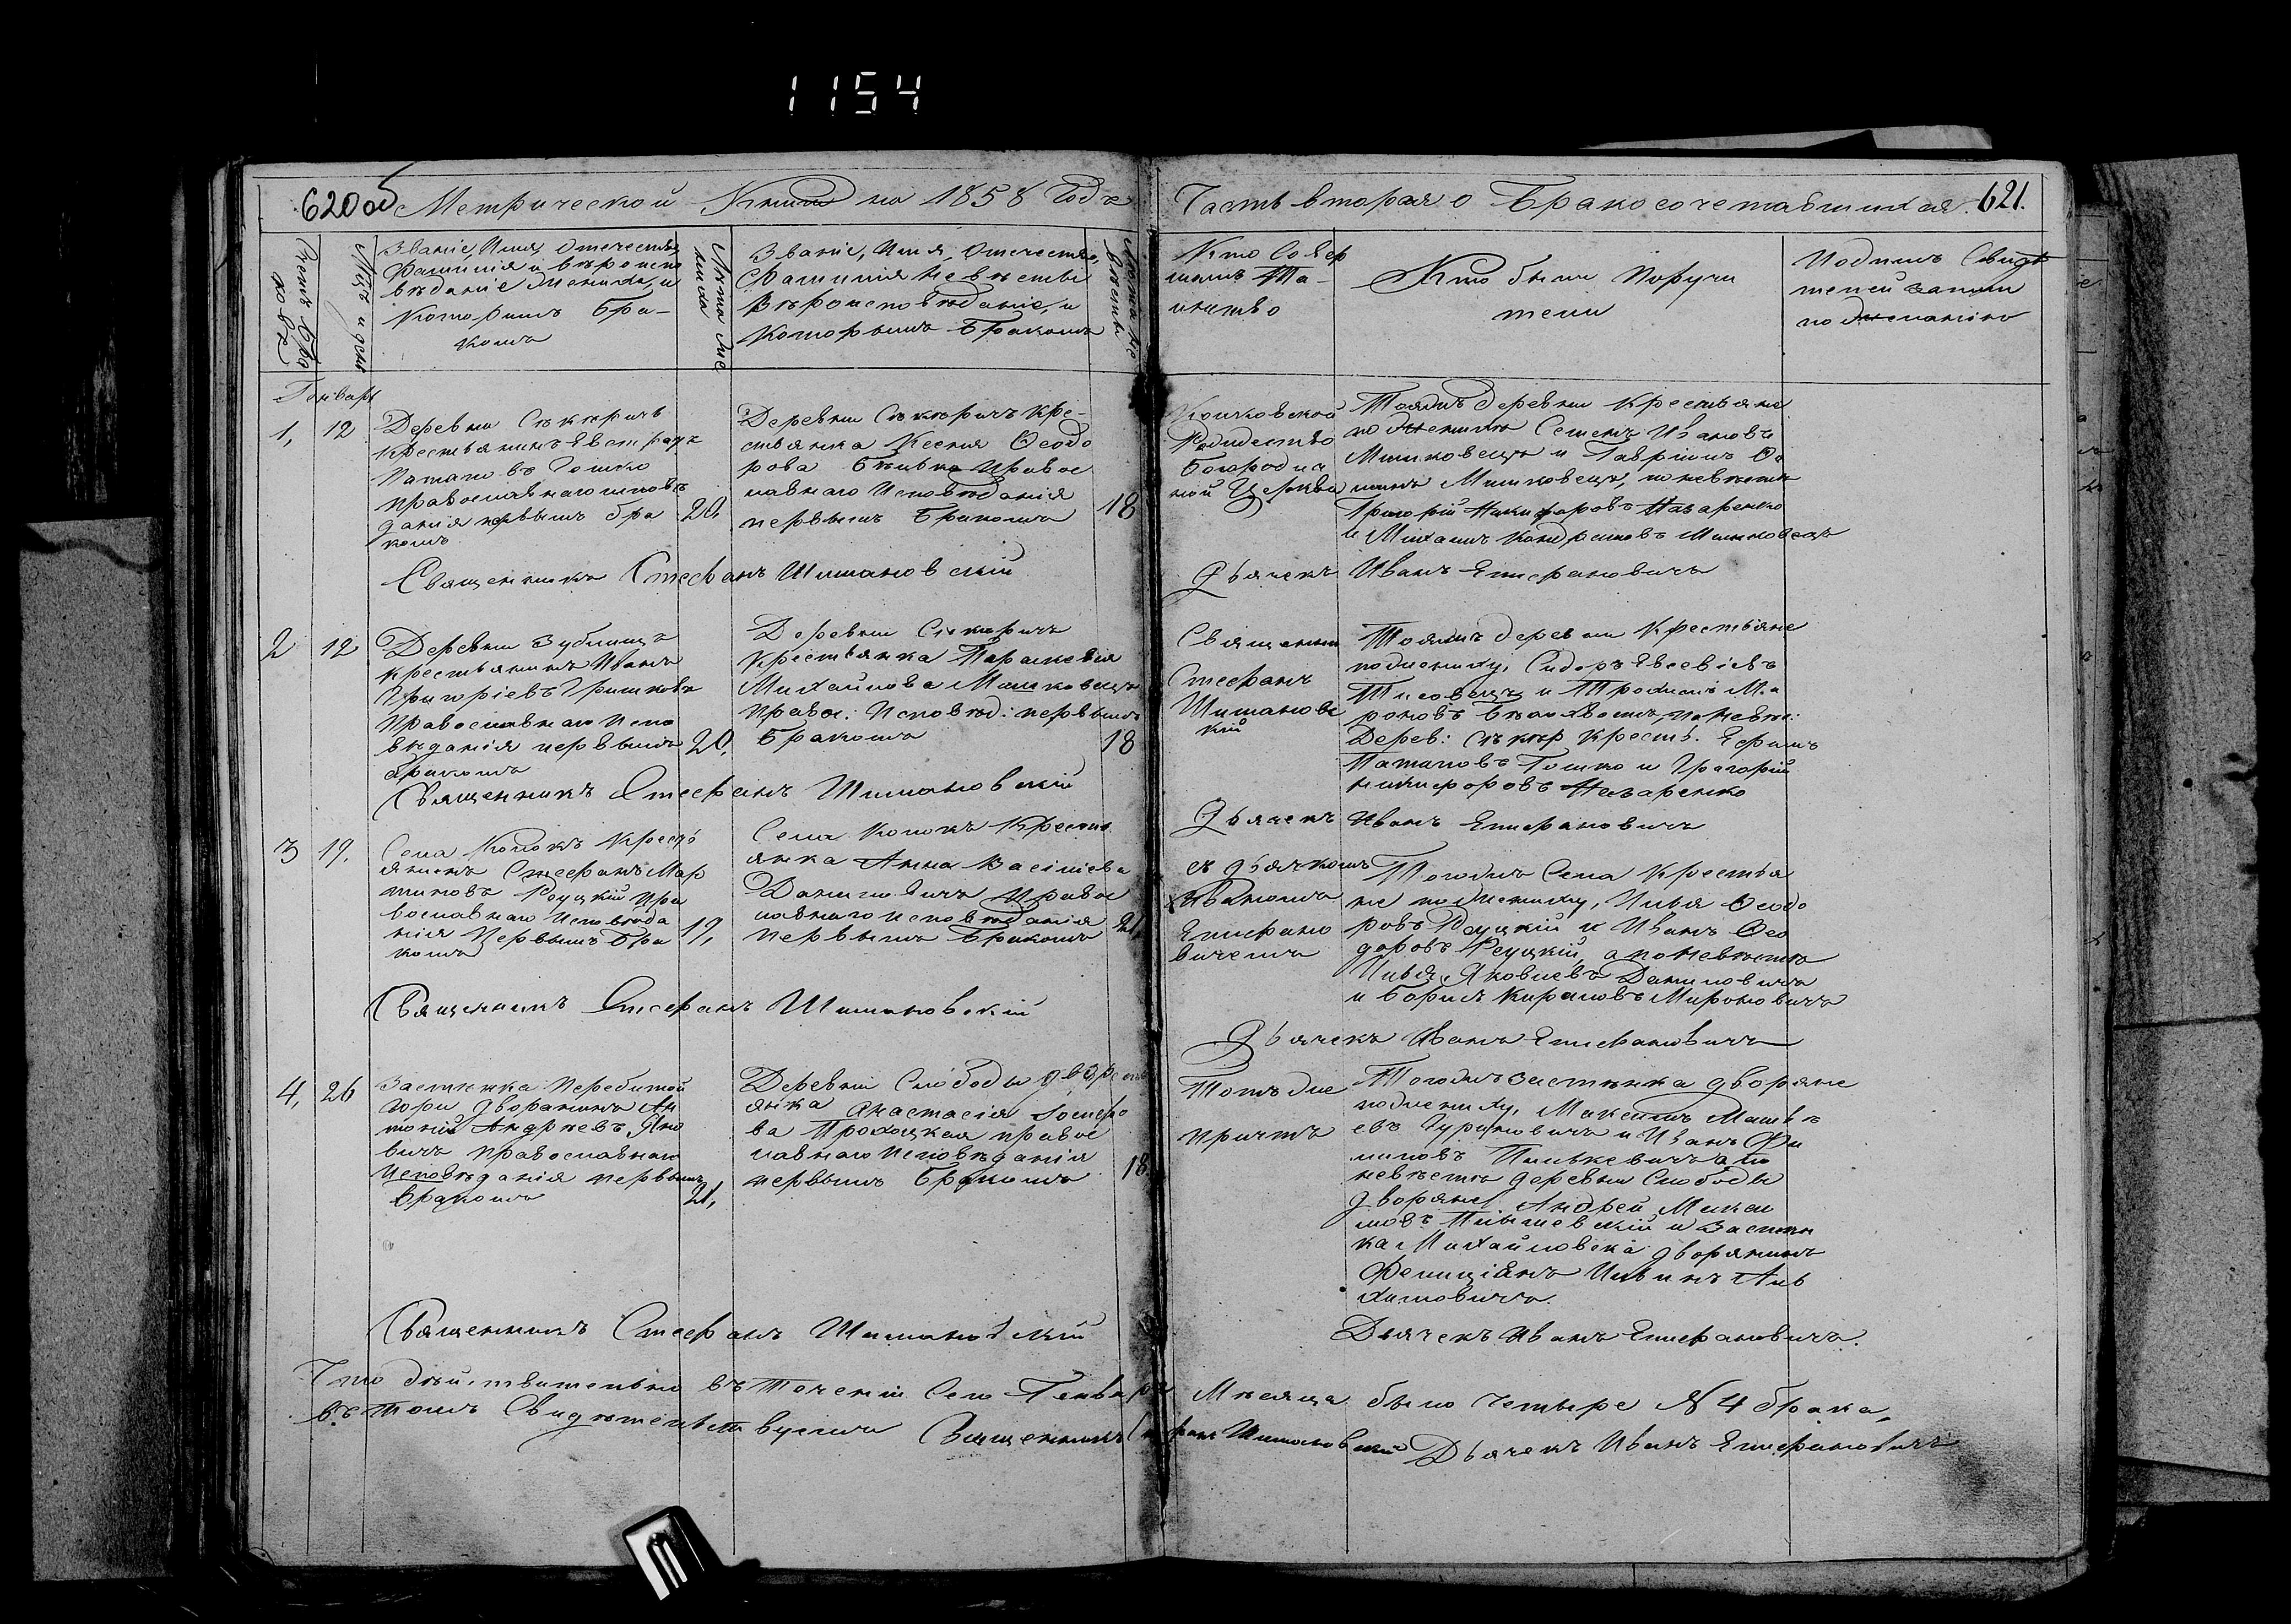 1154
620об Метрической Книги на 1858 Годъ
Часть вторая о Бракосочетавшихся. 621.
Счетъ Бра
ковъ
Мѣц и день
Званіе, Имя, Отечество,
Фамилія и вѣроиспо
вѣданіе Жениха, и
Которымъ Бра-
комъ
Лѣта Же
ниха
Званіе, Имя, Отечество,
Фамилія Невѣсты
Вѣроисповѣданіе, и
Которымъ Бракомъ
Лѣта Не
вѣсты
Кто Совер
шалъ Та-
инство
Кто были Поручи
тели
Подпись Свидѣ
телей записи
по желанію
Генварь
1, 12
Деревни Сѣкѣричъ
крестьянинъ Евстрат
Потаповъ Гошко
православнаго исповѣ
данія первымъ бра
комъ
20,
Деревни Сѣкѣричъ Кре-
стьянка Ксенія Ѳеодо
рова Правос
лавнаго Исповѣданія
первымъ Бракомъ
18
Рождество
Богородич
ной Церкви
Тояжъ деревни Крестьяне
по женихѣ Семенъ Ивановъ
Мишковецъ и Гавріилъ
Мишковецъ, по невѣстѣ
Григорій Никифоровъ Назаренко
и Михаилъ Кондратовъ Мишковецъ
Священникъ Стефанъ Шимановскій
Дьячекъ Иванъ Епифановичъ
2 12
Деревни Зубилищъ
крестьянинъ Иванъ
Григоріевъ
Православнаго Испо
вѣданія первымъ
бракомъ
20,
Деревни Сѣкѣричъ
Крестьянка Параскевія
Михайлова Мишковецъ
Правос: Исповѣд: первымъ
Бракомъ
18
Священникъ
Стефанъ
Шимановс
кій
Тояжъ деревни Крестьяне
по жениху, Сидоръ Евсевіевъ
и Трохимъ Ми
роновъ по невѣс:
Дерев: Сѣкѣр Кресть. Ефимъ
Потаповъ Гошко и Григорій
Никифоровъ Назаренко
Священникъ Стефанъ Шимановскій
Дьячекъ Иванъ Епифановичъ
3 19,
Села Колокъ Кресть
янинъ Стефанъ Мар
тиновъ Реуцкій Пра
вославнаго Исповѣда
нія Первымъ Бра
комъ
19,
Села Колокъ Кресть
янка Анна Василіева
Даниловичъ Правос
лавнаго исповѣданія
первымъ Бракомъ
21,
съ дьячкомъ
Иваномъ
Епифано
вичемъ
Тогожъ Села Крестья
не по Жениху, Илья Ѳеодо
ровъ Реуцкій и Иванъ Ѳео
доровъ Реуцкій, а по невѣстѣ
Илья Яковлевъ Даниловичъ
и Борисъ Мироновичъ
Священникъ Стефанъ Шимановскій
Дьячекъ Иванъ Епифановичъ
4, 26
Застѣнка Перебитой
Горы дворянинъ Ан
тоній Андреевъ Яно
вичъ православнаго
Исповѣданія первымъ
Бракомъ
21,
Деревни Слободы дворянка
Анастасія Іосифо
ва правос
лавнаго Исповѣданія
первымъ Бракомъ
18
Тотъ же
причтъ
Тогожъ застѣнка дворяне
по жениху, Максимъ Матвѣ
евъ и Иванъ Фи
липовъ а по
невѣстѣ деревни Слободы
дворяне Андрей Макси
мовъ и Застѣн
ка Михайловска дворянинъ
Фелиціанъ
Священникъ Стефанъ Шимановскій
Дьячекъ Иванъ Епифановичъ.
Что дѣйствительно въ теченіи Сего Генваря Мѣсяца было четыре № 4 брака,
въ томъ Свидѣтельствуемъ Священникъ Стефанъ Шимановскій Дьячекъ Иванъ Епифановичъ